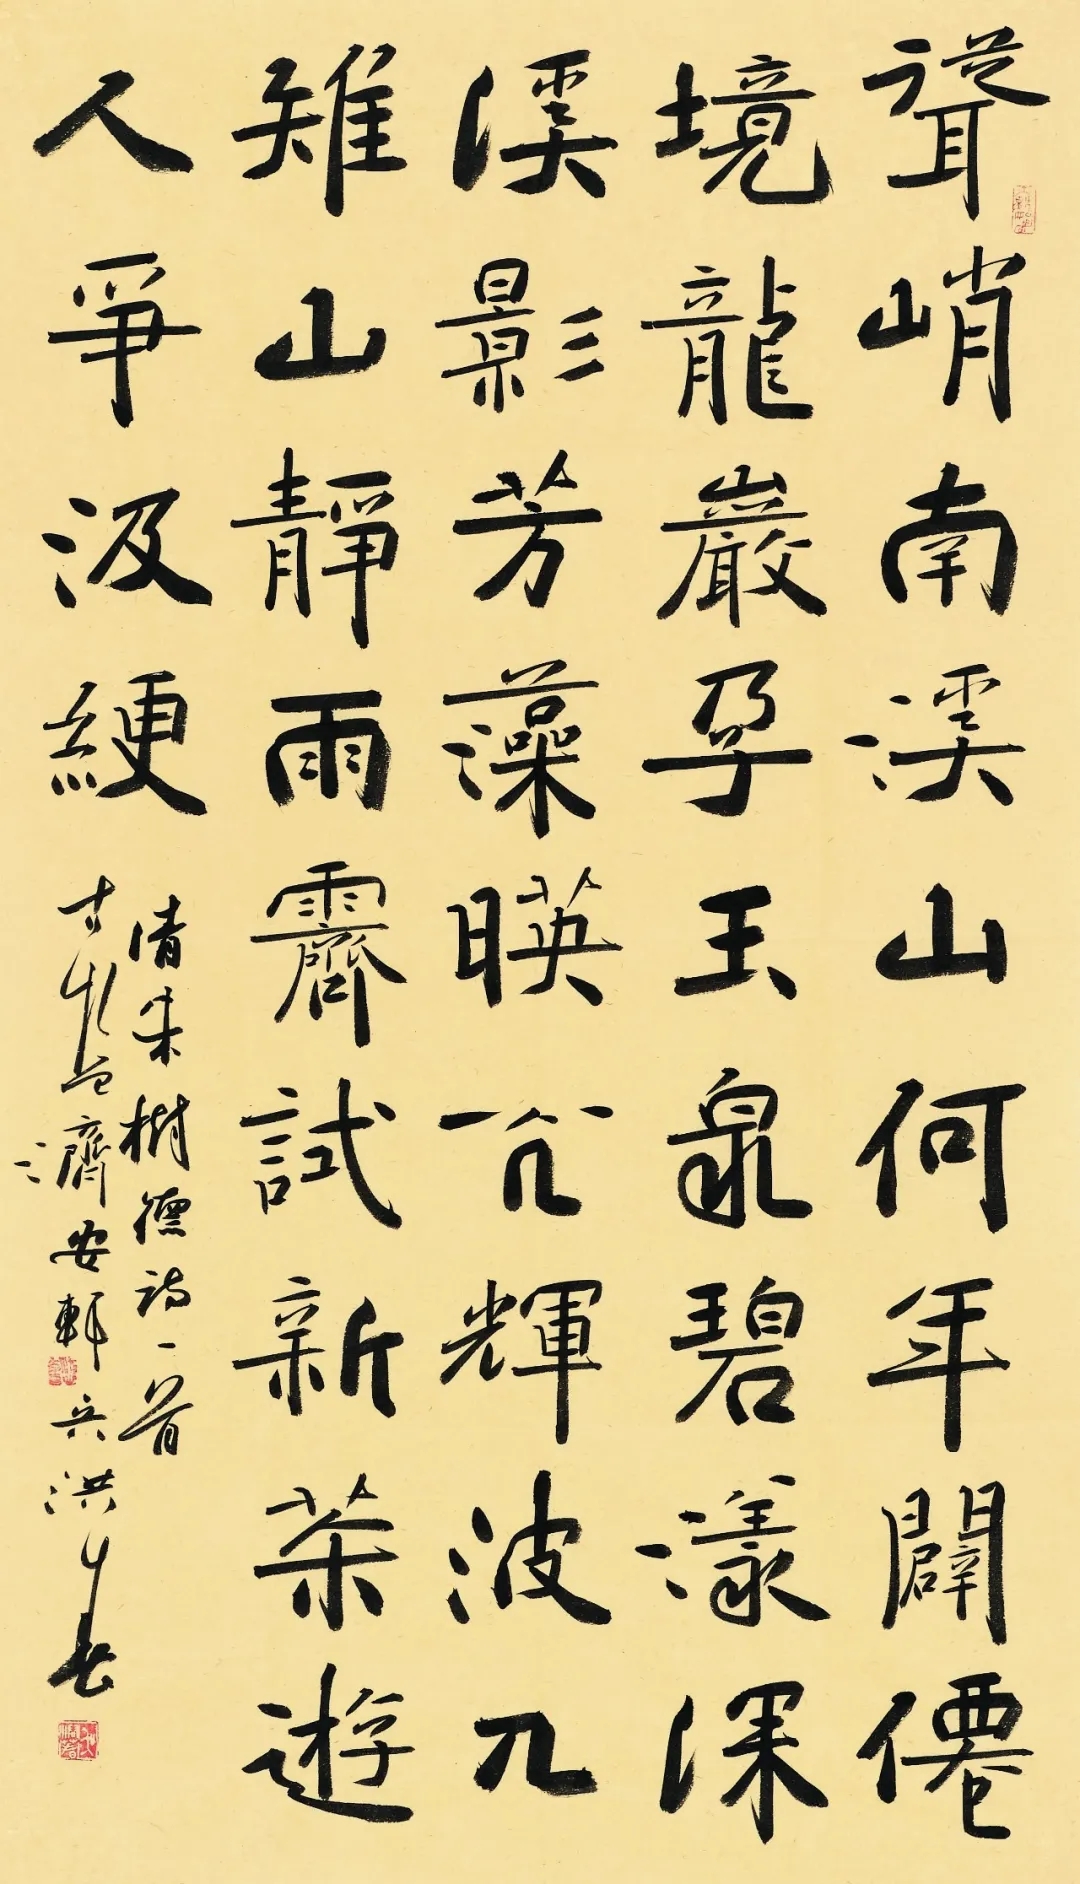 聳峭南溪山何年闢僊
境龍巖孕玉泉碧漾深
溪影芳藻暎輝波兀
雉山靜雨霽試新茶遊
人爭汲綆
清朱樹德詩一首
濟安軒洪